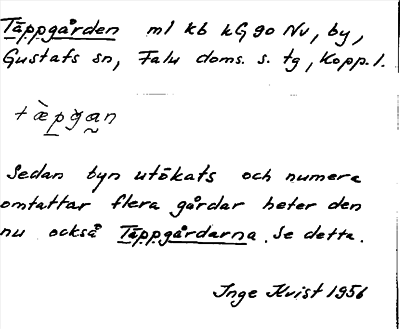 Täppgården ml kb kG 90 Nv, by,
Gustafs sn, Falu doms. s. tg, Kopp. l.
Sedan byn utökats och numera
omfattar flera gårdar heter den
nu också Täppgårdarna. Se detta.
Inge Kvist 1956